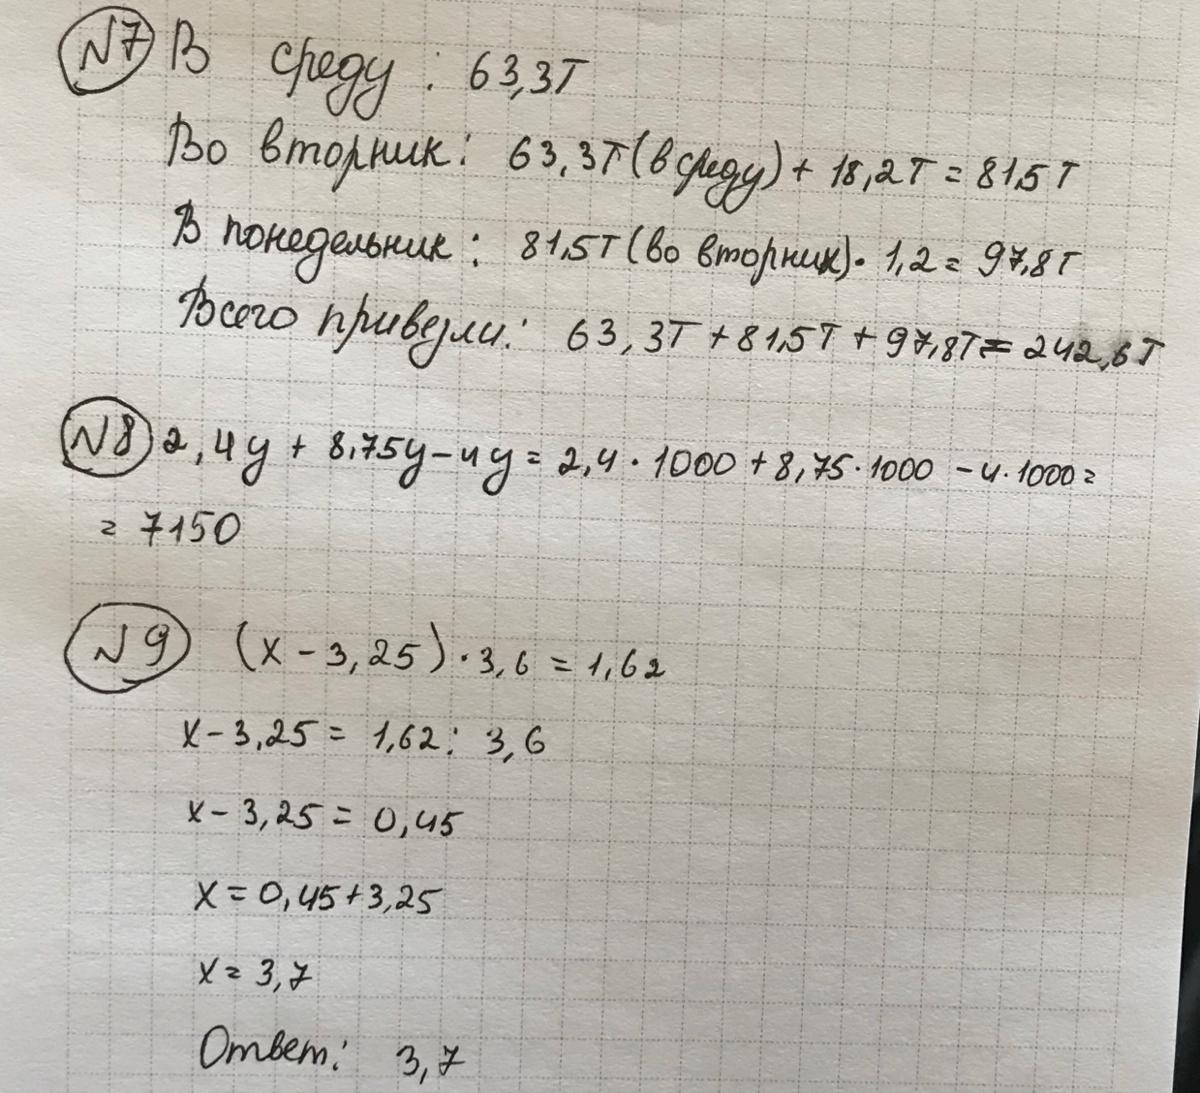 N7 В среду: 63,3т
Во вторник: 63,3т (в среду) + 18,2т = 81,5т
В понедельник: 81,5т (во вторник) · 1,2 = 97,8т
Всего привезли: 63,3т + 81,5т + 97,8т = 242,6т
N8 2,4y + 8,75y - 4y = 2,4 · 1000 + 8,75 · 1000 - 4 · 1000 =
= 7150
N9 (x - 3,25) · 3,6 = 1,62
x - 3,25 = 1,62 : 3,6
x - 3,25 = 0,45
x = 0,45 + 3,25
x = 3,7
Ответ: 3,7